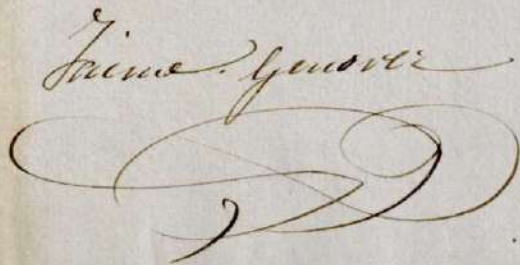 Jaime Genover